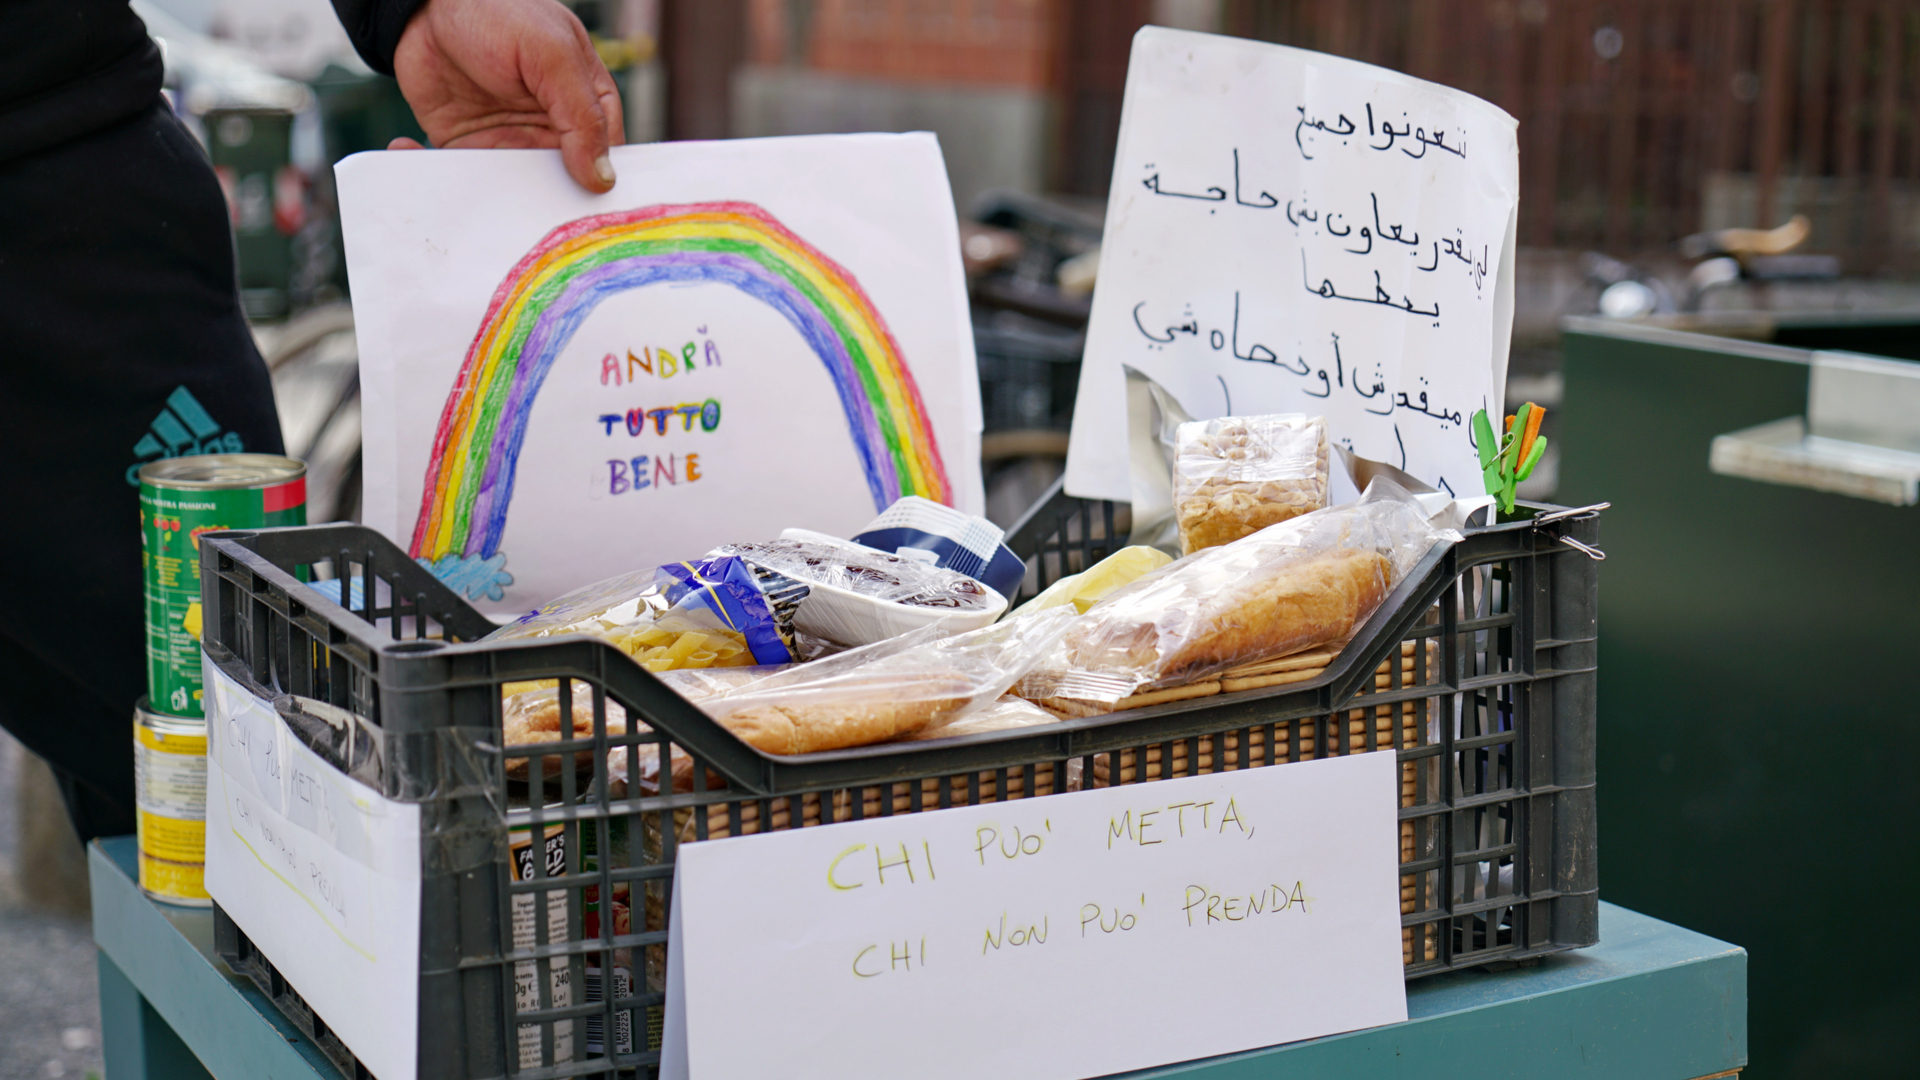 ANDRÀ
TUTTO
BENE
نتعونوا جميع
لي يقدر يعاون بشي حاجة
يحطها
ميقدرش أوخصاه شي
adidas
CHI PUO' METTA,
CHI NON PUO' PRENDA
CHI PUO' METTA,
CHI NON PUO' PRENDA
240